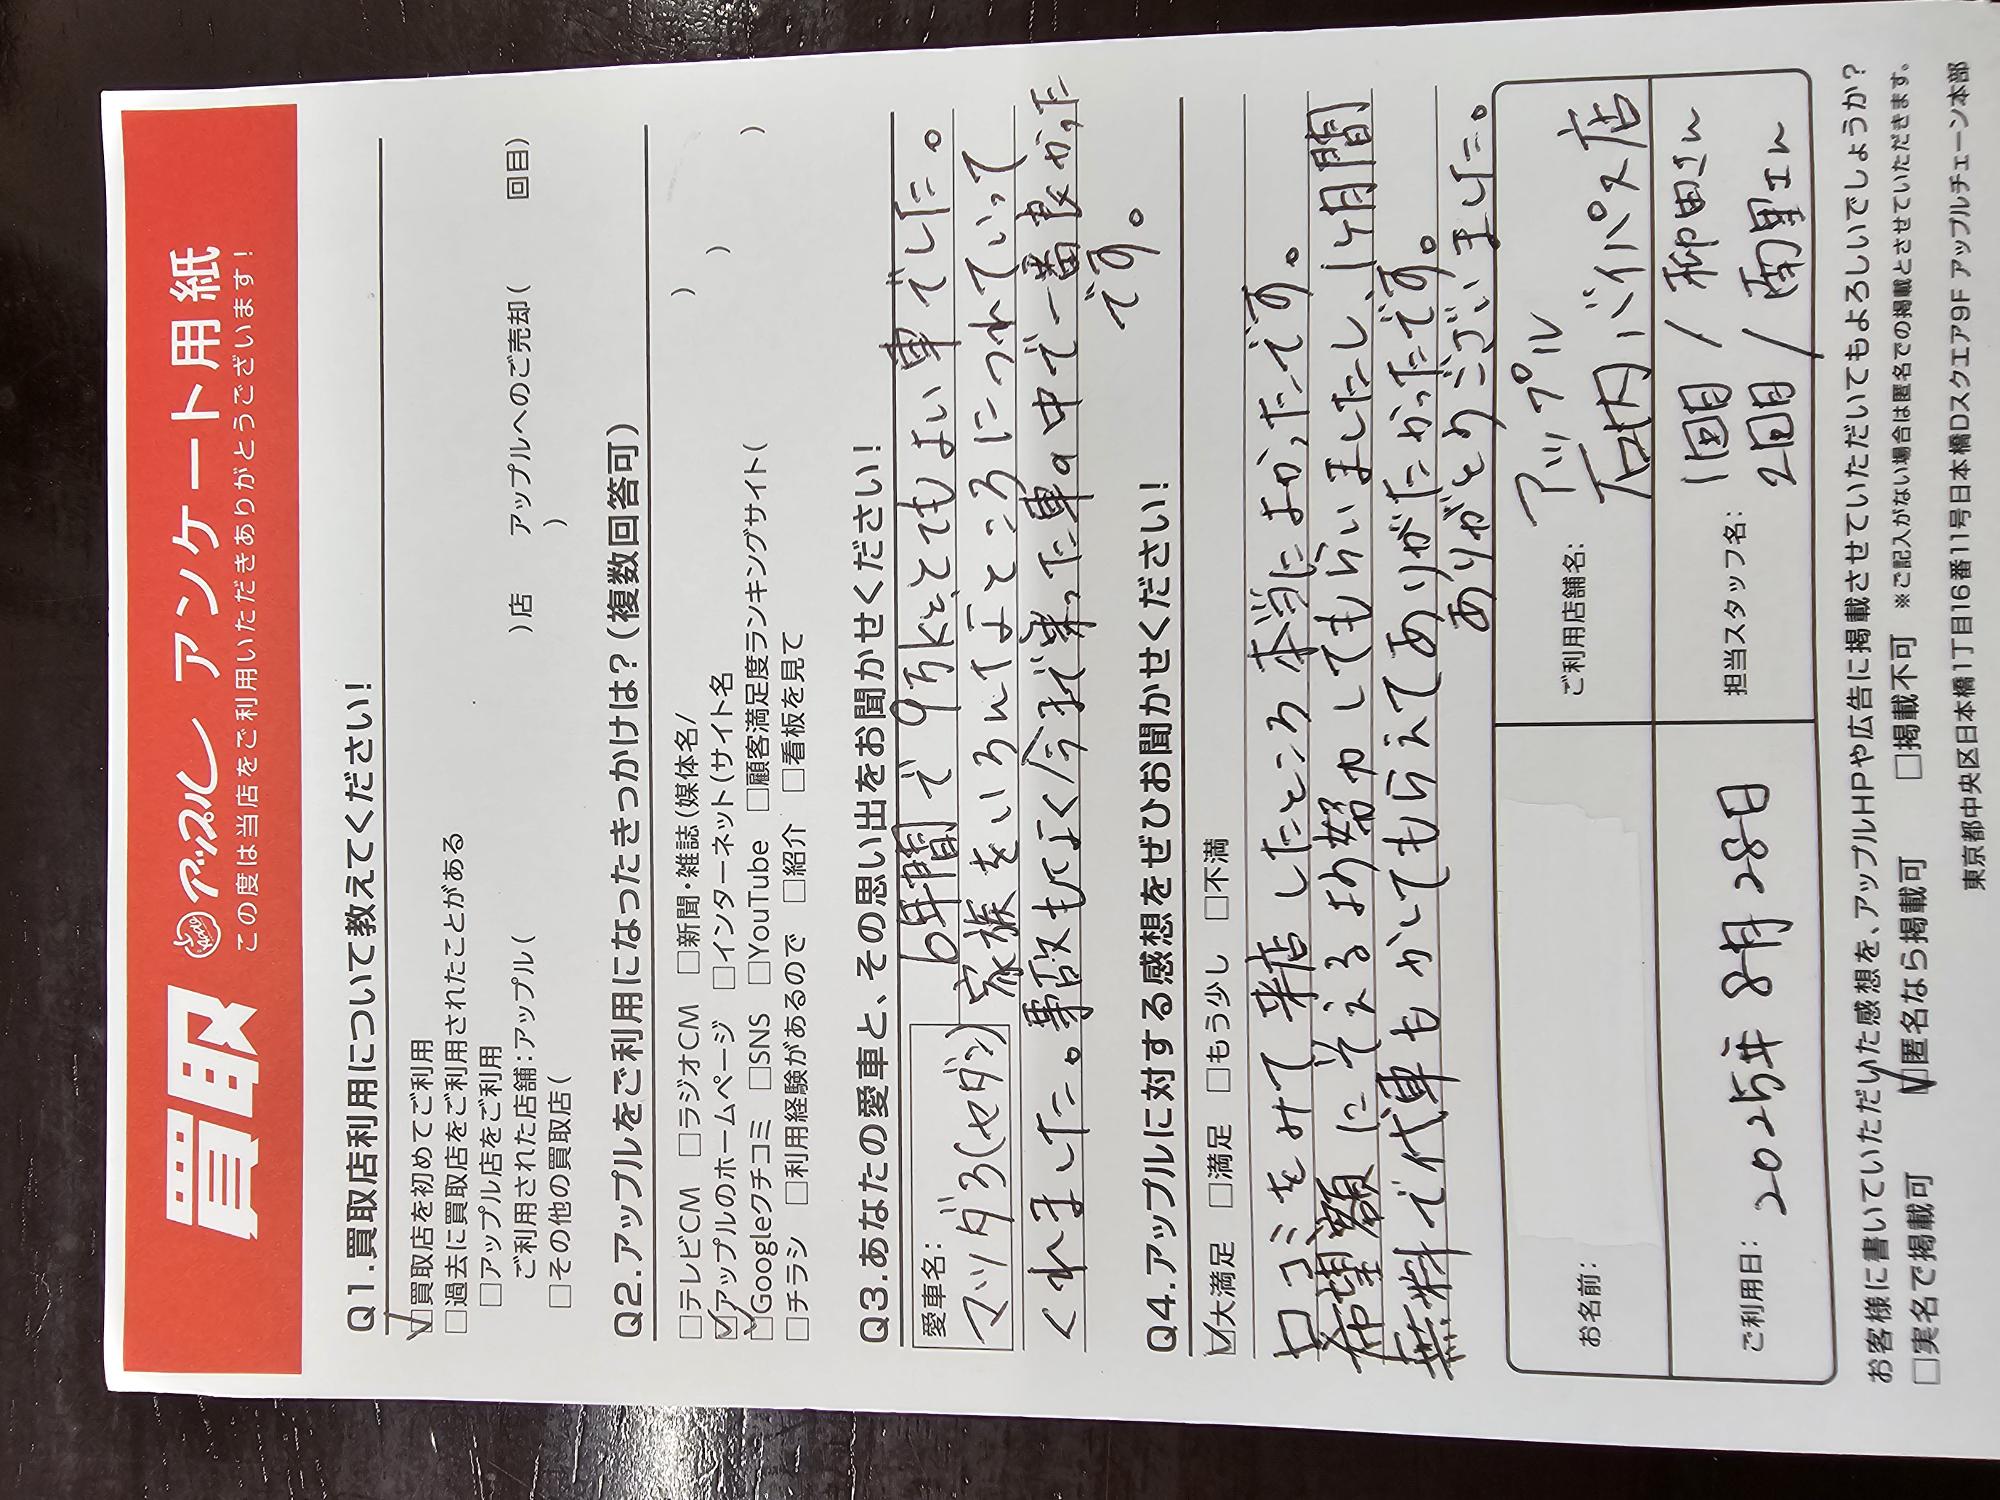 買取 アップル アンケート用紙
この度は当店をご利用いただきありがとうございます!
Q1.買取店利用について教えてください!
☑買取店を初めてご利用
□過去に買取店をご利用されたことがある
□アップル店をご利用
ご利用された店舗:アップル( )店 アップルへのご売却( 回目)
□その他の買取店( )
Q2.アップルをご利用になったきっかけは?(複数回答可)
□テレビCM □ラジオCM □新聞・雑誌(媒体名/ )
☑アップルのホームページ □インターネット(サイト名 )
☑Googleクチコミ □SNS □YouTube □顧客満足度ランキングサイト( )
□チラシ □利用経験があるので □紹介 □看板を見て
Q3.あなたの愛車と、その思い出をお聞かせください!
愛車名:
マツダ3(セダン)
6年間で9万kと、とてもよい車でした。
家族をいろんなところにつれていって
くれました。事故もなく今まで乗った車の中で一番良かった
です。
Q4.アップルに対する感想をぜひお聞かせください!
☑大満足 □満足 □もう少し □不満
口コミをみて来店したところ本当によかったです。
希望額にそえるよう努力してもらいましたし、1ヶ月間
無料で代車もかしてもらえてありがたかったです。
ありがとうございました。
お名前:
ご利用店舗名: アップル
石内バイパス店
ご利用日: 2025年8月28日
担当スタッフ名: 1回目/柳田さん
2回目/南里さん
お客様に書いていただいた感想を、アップルHPや広告に掲載させていただいてもよろしいでしょうか?
□実名で掲載可 ☑匿名なら掲載可 □掲載不可 ※ご記入がない場合は匿名での掲載とさせていただきます。
東京都中央区日本橋1丁目16番11号日本橋Dスクエア9F アップルチェーン本部